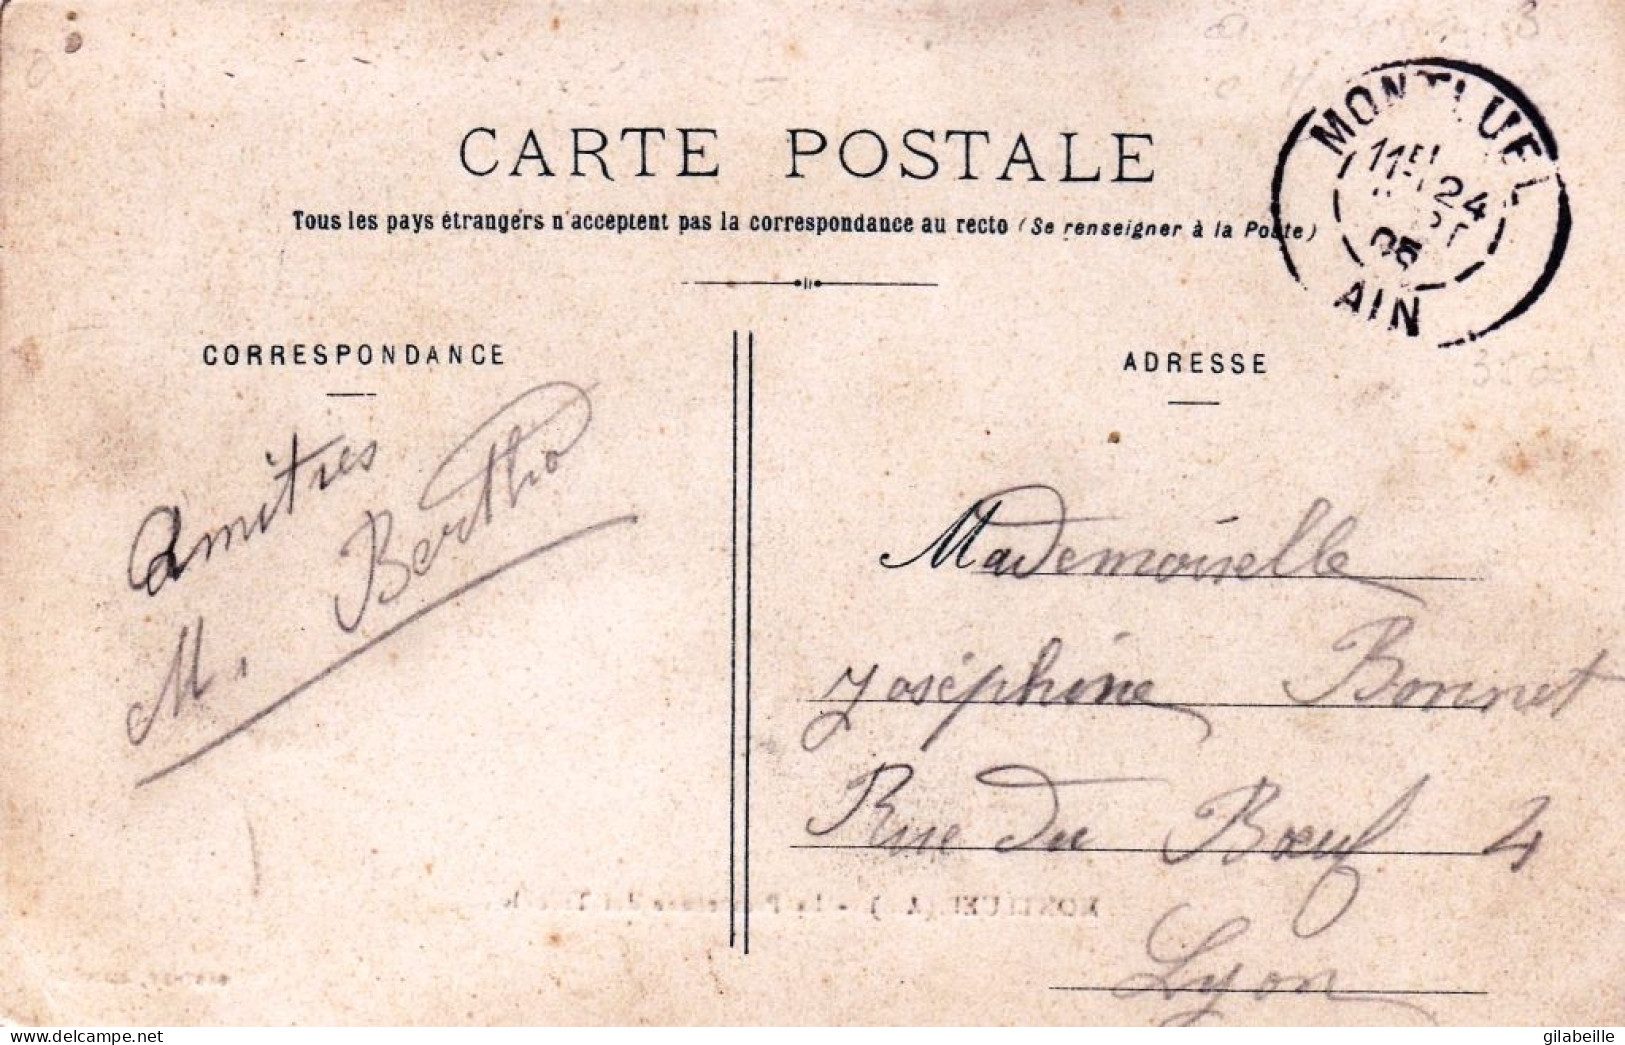 CARTE POSTALE
Tous les pays étrangers n'acceptent pas la correspondance au recto (Se renseigner à la Poste)
MONTLUEL
24
AIN
CORRESPONDANCE
ADRESSE
Amitiés
M. Bertho
Mademoiselle
Joséphine Bonnet
Rue du Bœuf 4
Lyon
https://www.delcampe.net
gilabeille